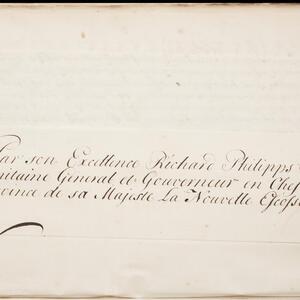 Par son Excellence Richard Philipps
Capitaine General et Gouverneur en Chef
Province de sa Majeste La Nouvelle Escosse